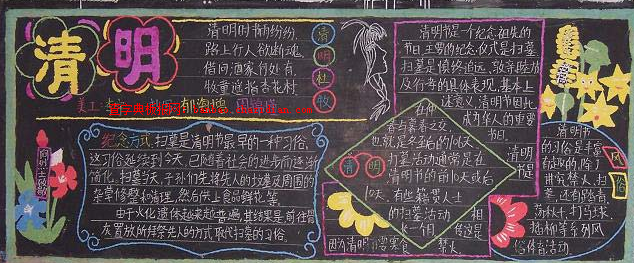 清明
清明时节雨纷纷,
路上行人欲断魂,
借问酒家何处有
牧童遥指杏花村.
清明杜牧
美工:
纪念方式:扫墓是清明节最早的一种习俗,
这习俗延续到今天,已随着社会的进步而逐渐
简化,扫墓当天,子孙们先将先人的坟墓及周围的
杂草修整和清理,然后供上食品鲜花等.
由于火化遗体越来越普遍,其结果是前往骨
灰置放所拜祭先人的方式取代扫墓的习俗.
清明节是一个纪念祖先的
节日,主要的纪念仪式是扫墓
扫墓是慎终追远、敦亲睦族
及行孝的具体表现,基本上
述意义,清明节因此
成为华人的重要
节日.
在仲
春与暮春之交
也就是冬至后的106天
扫墓活动通常是在
清明节的前10天或后
10天,有些籍贯人士
的扫墓活动
长一个月
清明
清明节
的习俗是丰富
有趣的,除了
讲究禁火,扫
墓,还有踏青
荡秋千,打马球,
插柳等系列风
俗体育活动.
风俗